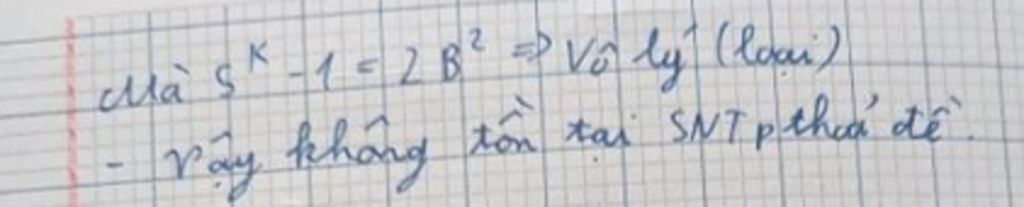 Mà 5^K - 1 = 2B² => Vô lý (loại)
- Vậy không tồn tại SNT p thoả đề.